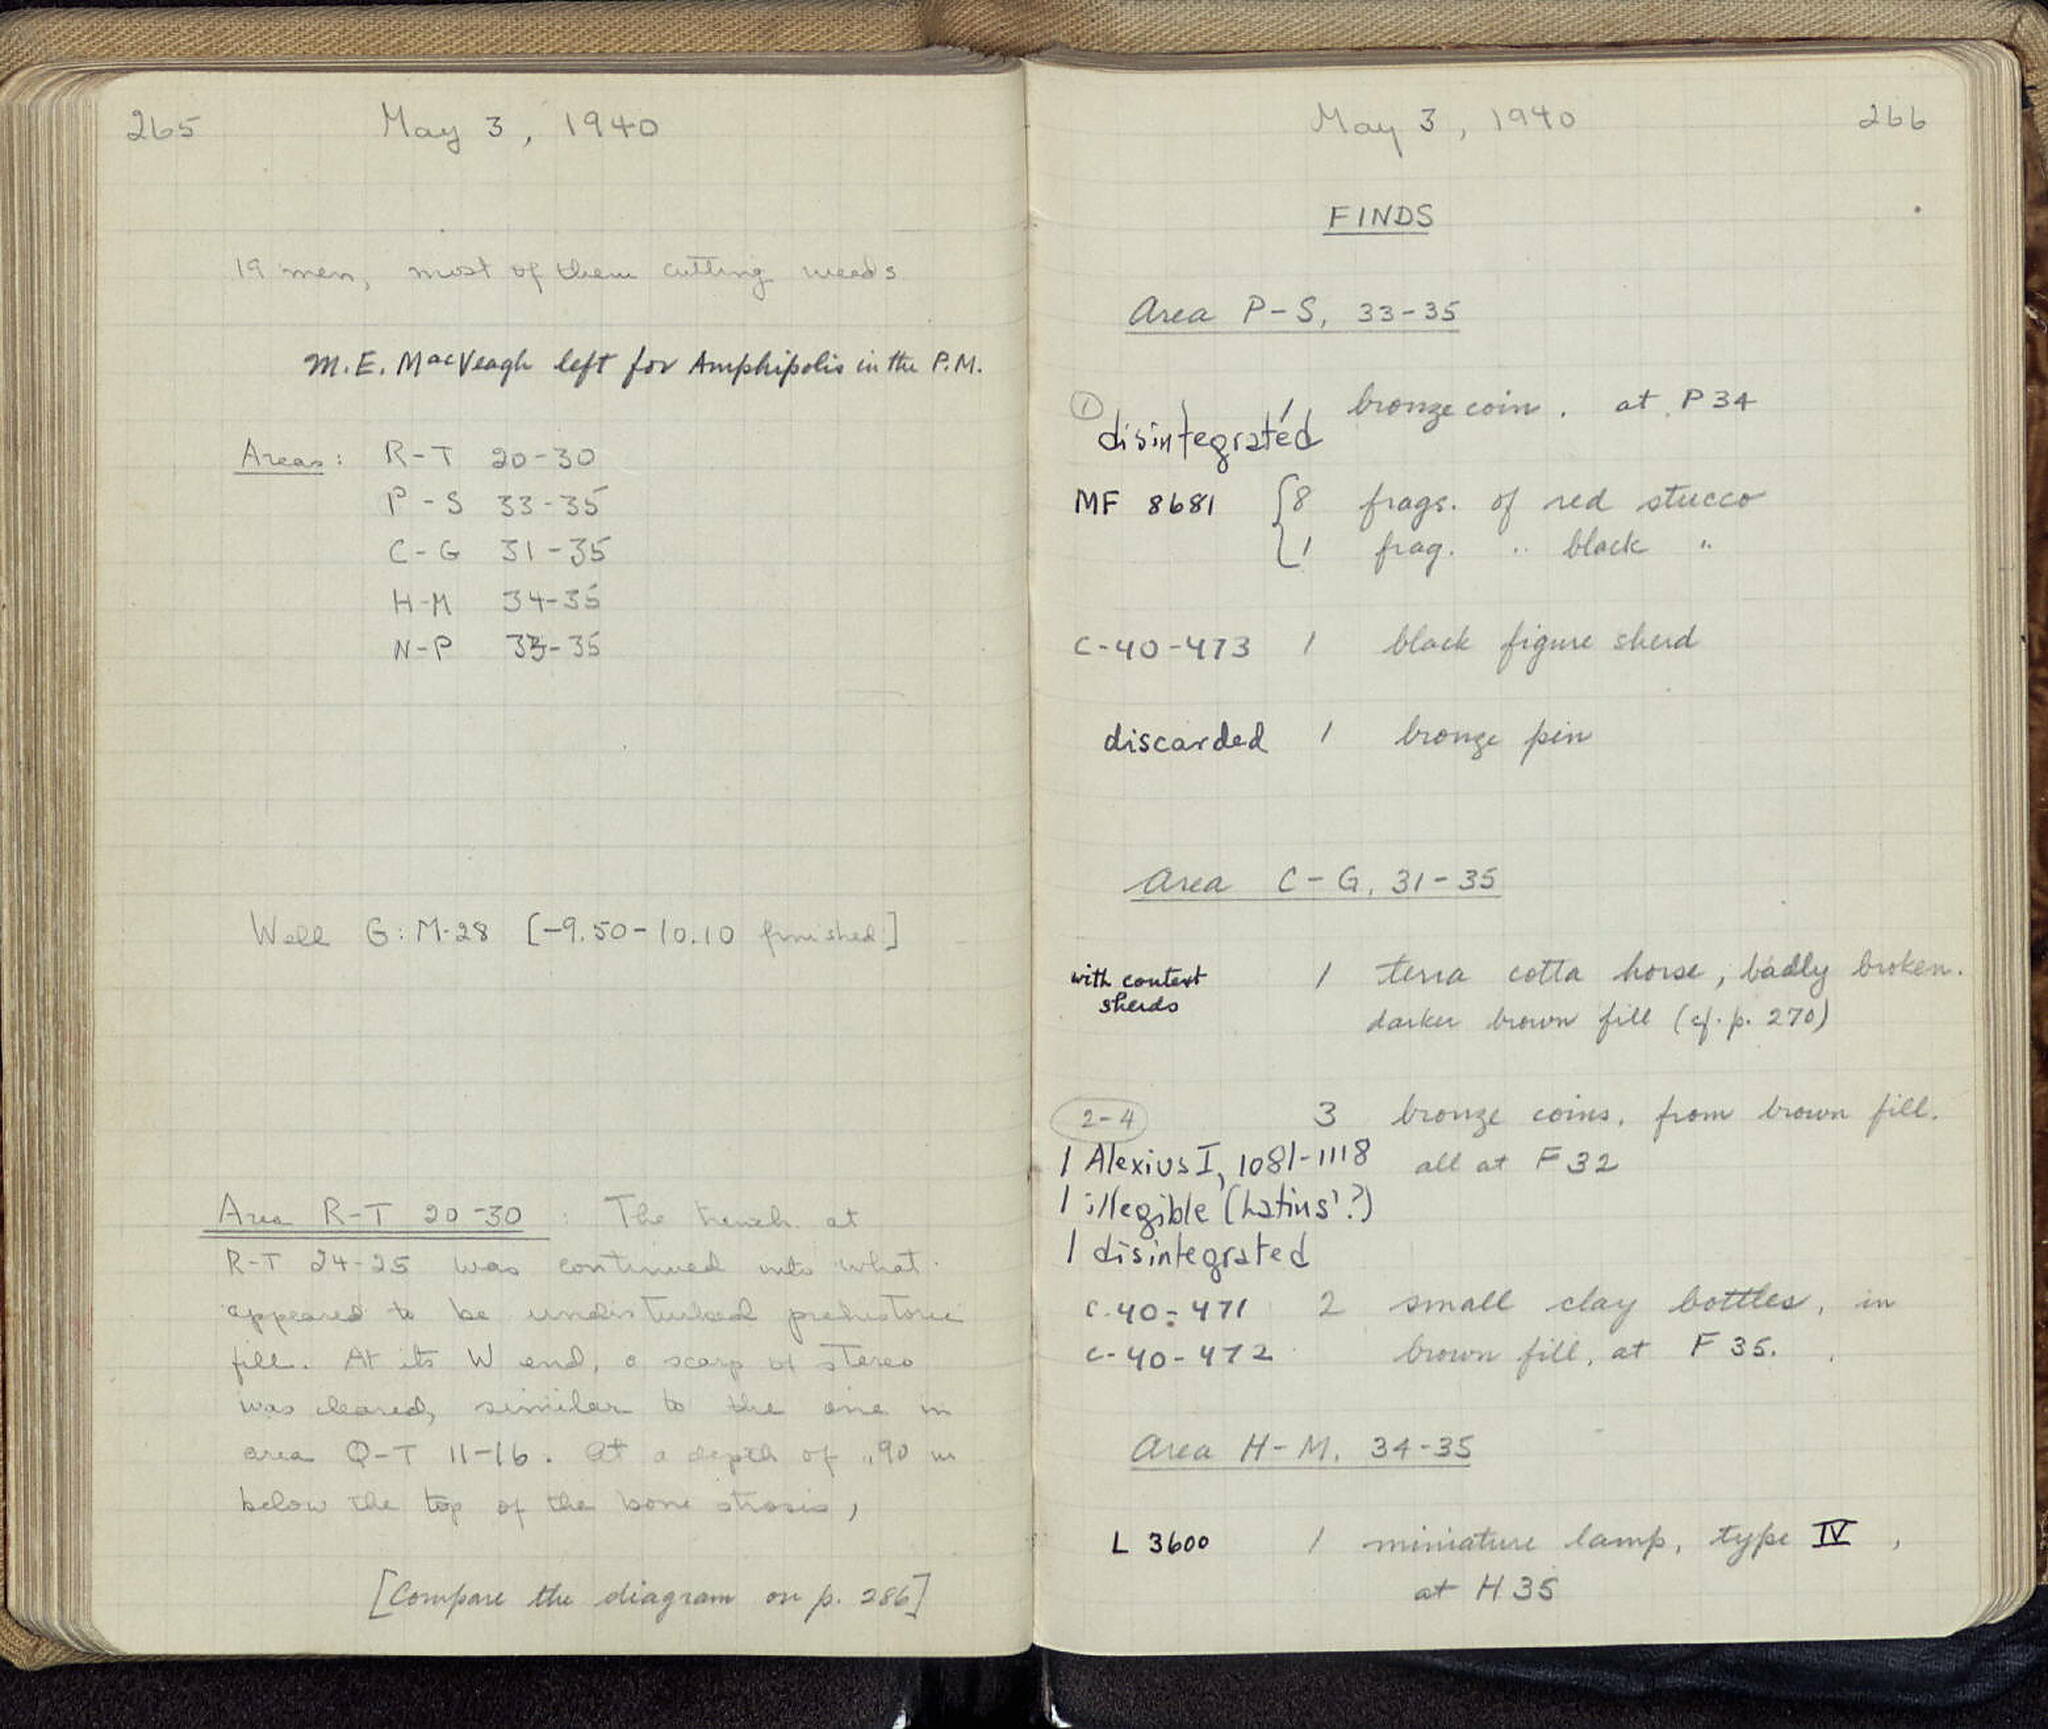 265
May 3, 1940
19 men, most of them cutting weeds
M.E. MacVeagh left for Amphipolis in the P.M.
Areas: R-T 20-30
P-S 33-35
C-G 31-35
H-M 34-35
N-P 33-35
Well G:M-28 [-9.50-10.10 finished]
Area R-T 20-30 : The trench at
R-T 24-25 was continued into what
appeared to be undisturbed prehistoric
fill. At its W end, a scarp of stereo
was cleared, similar to the one in
area Q-T 11-16. At a depth of .90 m
below the top of the bone strosis,
[Compare the diagram on p. 286]
May 3, 1940
266
FINDS
Area P-S, 33-35
① 1 bronze coin. at P34
disintegrated
MF 8681 { 8 frags. of red stucco
1 frag. " black "
C-40-473 1 black figure sherd
discarded 1 bronze pin
Area C-G, 31-35
with context 1 terra cotta horse, badly broken.
sherds darker brown fill (cf. p. 270)
2-4 3 bronze coins, from brown fill.
1 Alexius I, 1081-1118 all at F32
1 illegible (Latins'?)
1 disintegrated
C-40-471 2 small clay bottles, in
C-40-472 brown fill, at F 35.
Area H-M, 34-35
L 3600 1 miniature lamp, type IV,
at H35